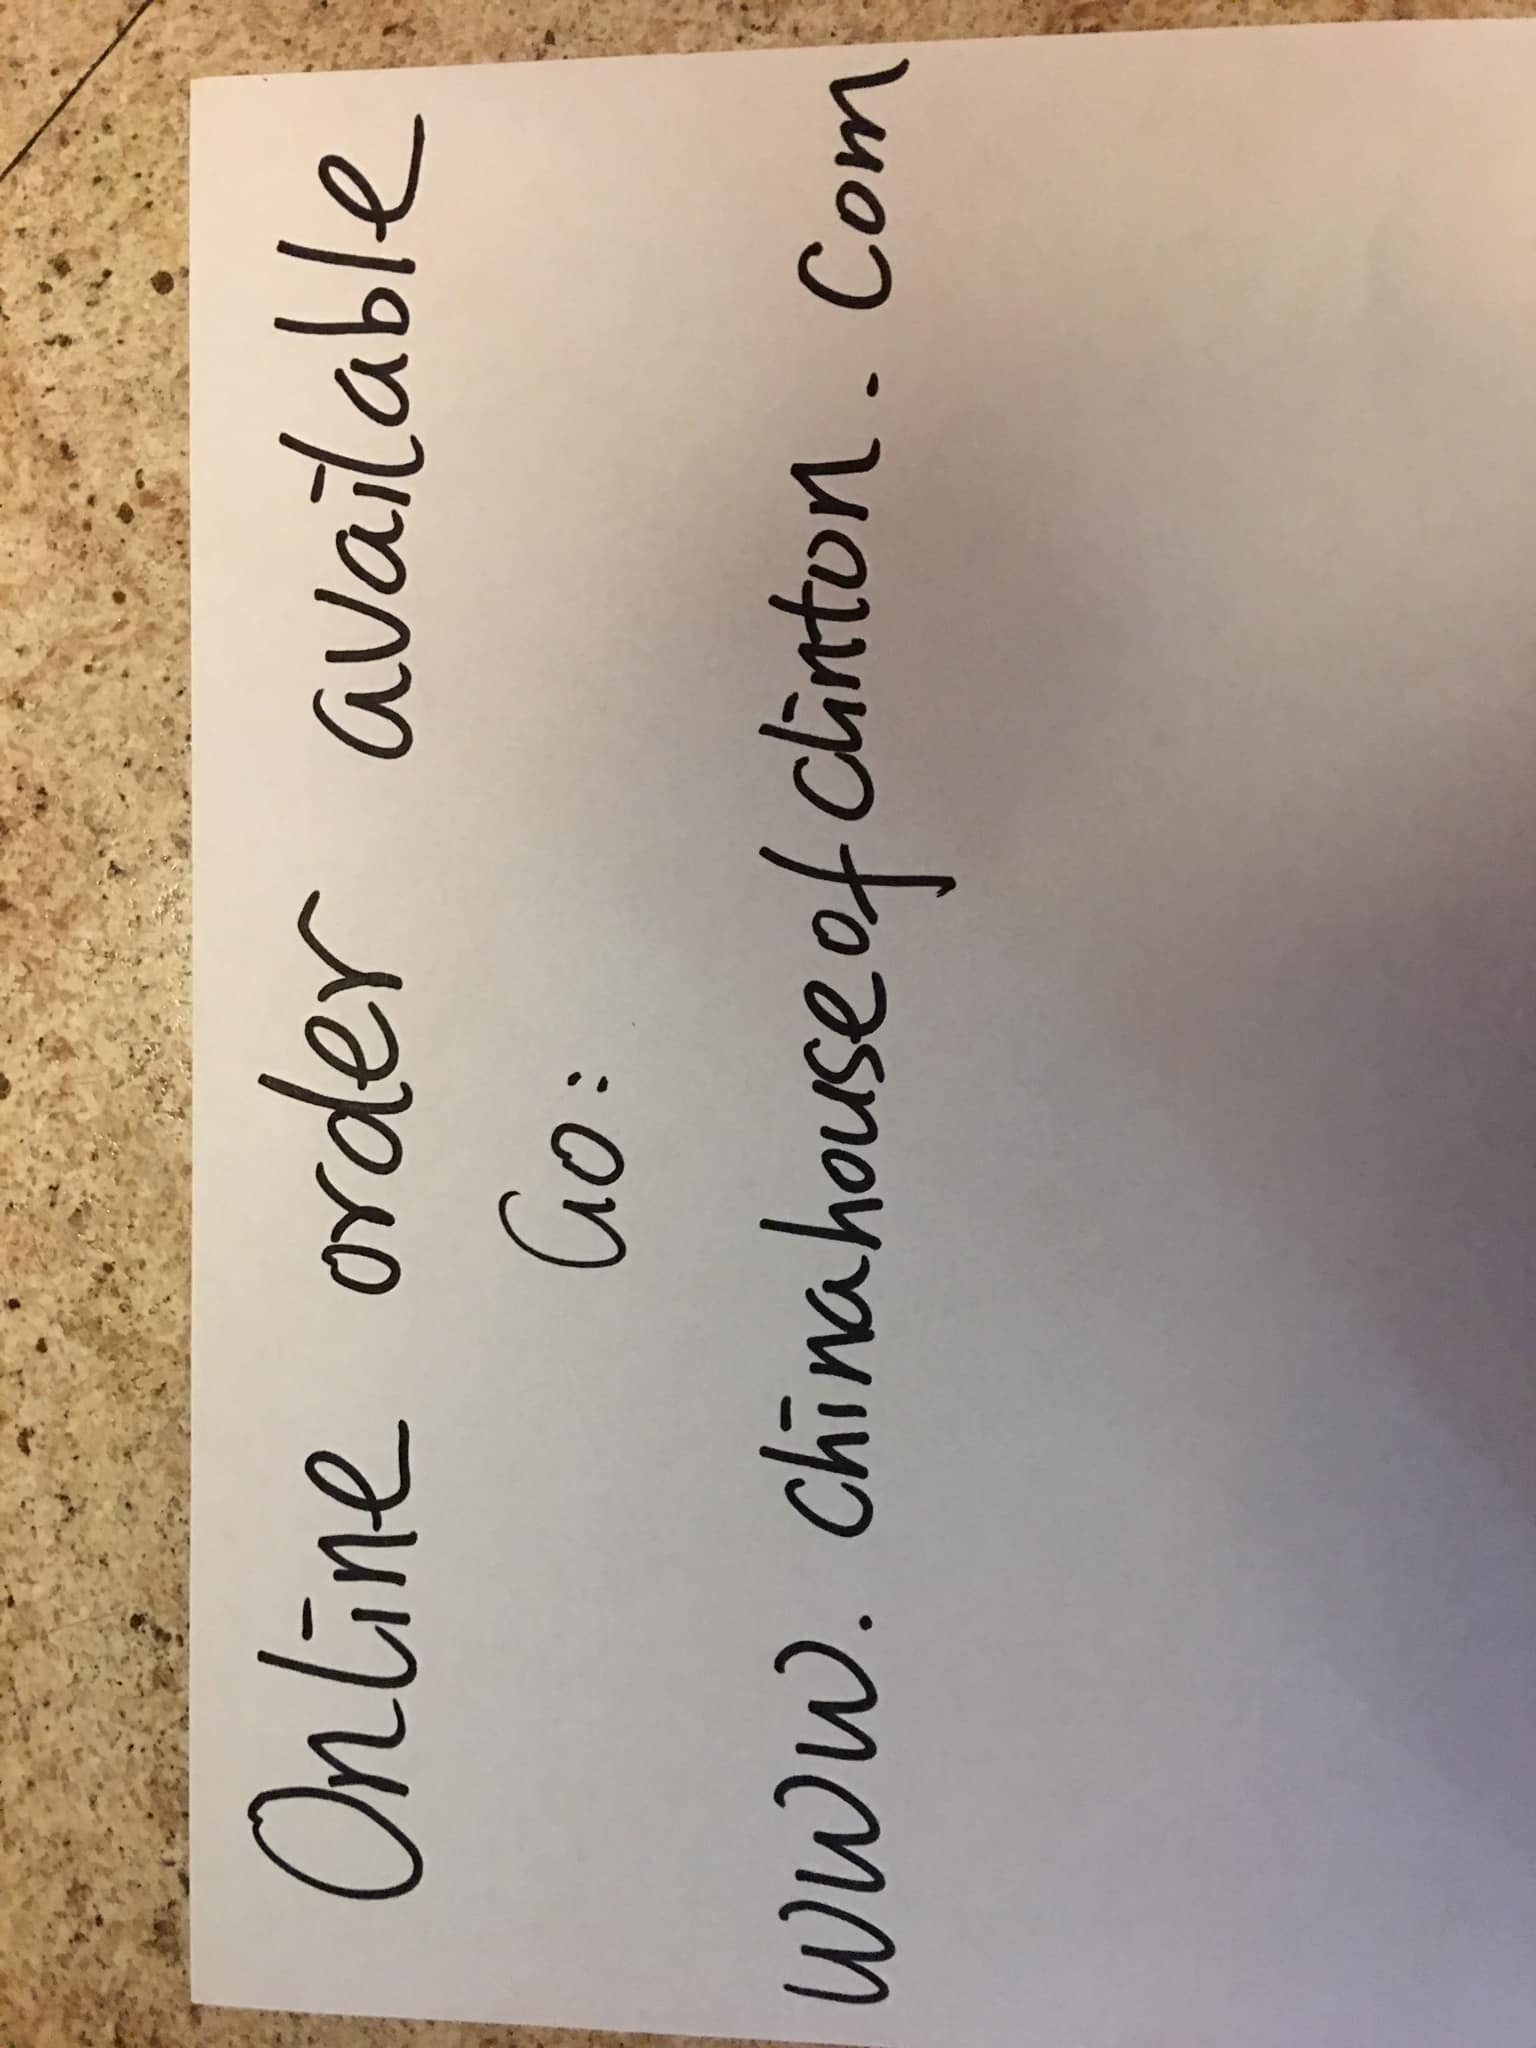 Online order available
Go:
www. chinahouseofclinton. Com